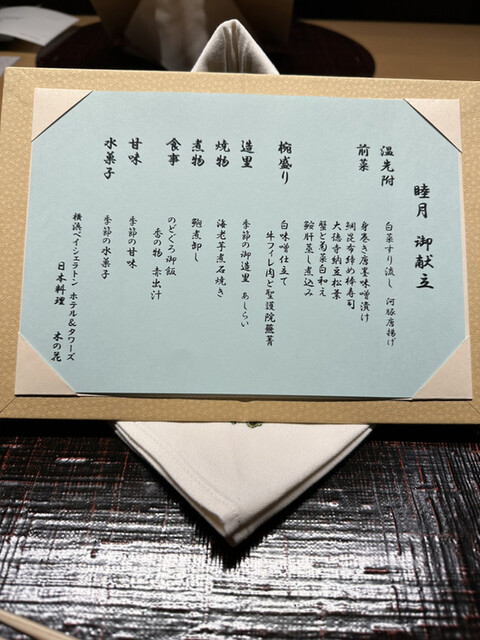 睦月 御献立
温先附 白菜すり流し 河豚唐揚げ
前菜 身巻き唐墨味噌漬け
鯛昆布締め棒寿司
大徳寺納豆松葉
蟹と菊菜白和え
鮟肝蒸し煮込み
椀盛り 白味噌仕立て
牛フィレ肉と聖護院蕪菁
造里 季節の御造里 あしらい
焼物 海老芋煮石焼き
煮物 鮑煮卸し
食事 のどくろ御飯
香の物 赤出汁
甘味 季節の甘味
水菓子 季節の水菓子
横浜ベイシェラトン ホテル&タワーズ
日本料理 木の花